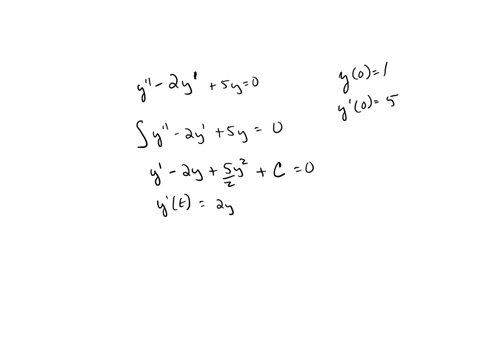 y'' - 2y' + 5y = 0
y(0) = 1
y'(0) = 5
∫ y'' - 2y' + 5y = 0
y' - 2y + 5y²/2 + C = 0
y'(t) = 2y